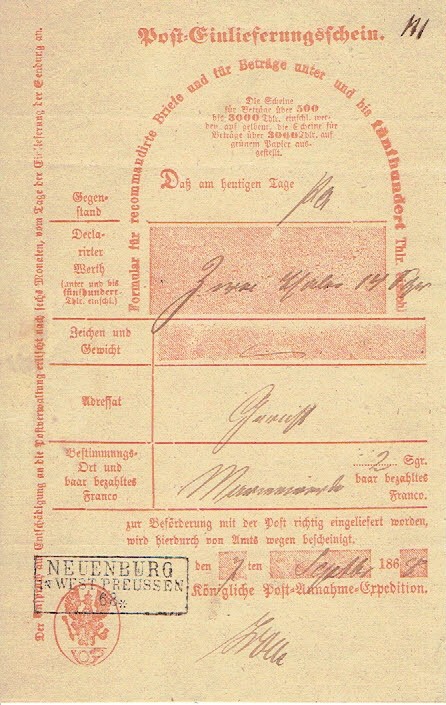 Post-Einlieferungsschein.
Formular für recommandirte Briefe und für Beträge unter und bis fünfhundert Thlr.
Die Scheine
für Beträge über 500
bis 3000 Thlr. einschl. wer-
den auf gelbem, die Scheine für
Beträge über 3000 Thlr. auf
grünem Papier aus-
gestellt.
Daß am heutigen Tage
Gegen-
stand
Decla-
rirter
Werth
(unter und bis
fünfhundert
Thlr. einschl.)
Zwei Thaler 14 Sgr
Zeichen und
Gewicht
Adressat
Gericht
Bestimmungs-
Ort und
baar bezahltes
Franco
Marienwerder
2 Sgr.
baar bezahltes
Franco.
zur Beförderung mit der Post richtig eingeliefert worden,
wird hierdurch von Amts wegen bescheinigt.
den 7 ten Septbr 1868
Königliche Post-Annahme-Expedition.
NEUENBURG
IN WEST PREUSSEN
Der Anspruch auf Entschädigung an die Postverwaltung erlischt nach sechs Monaten, vom Tage der Einlieferung der Sendung an.